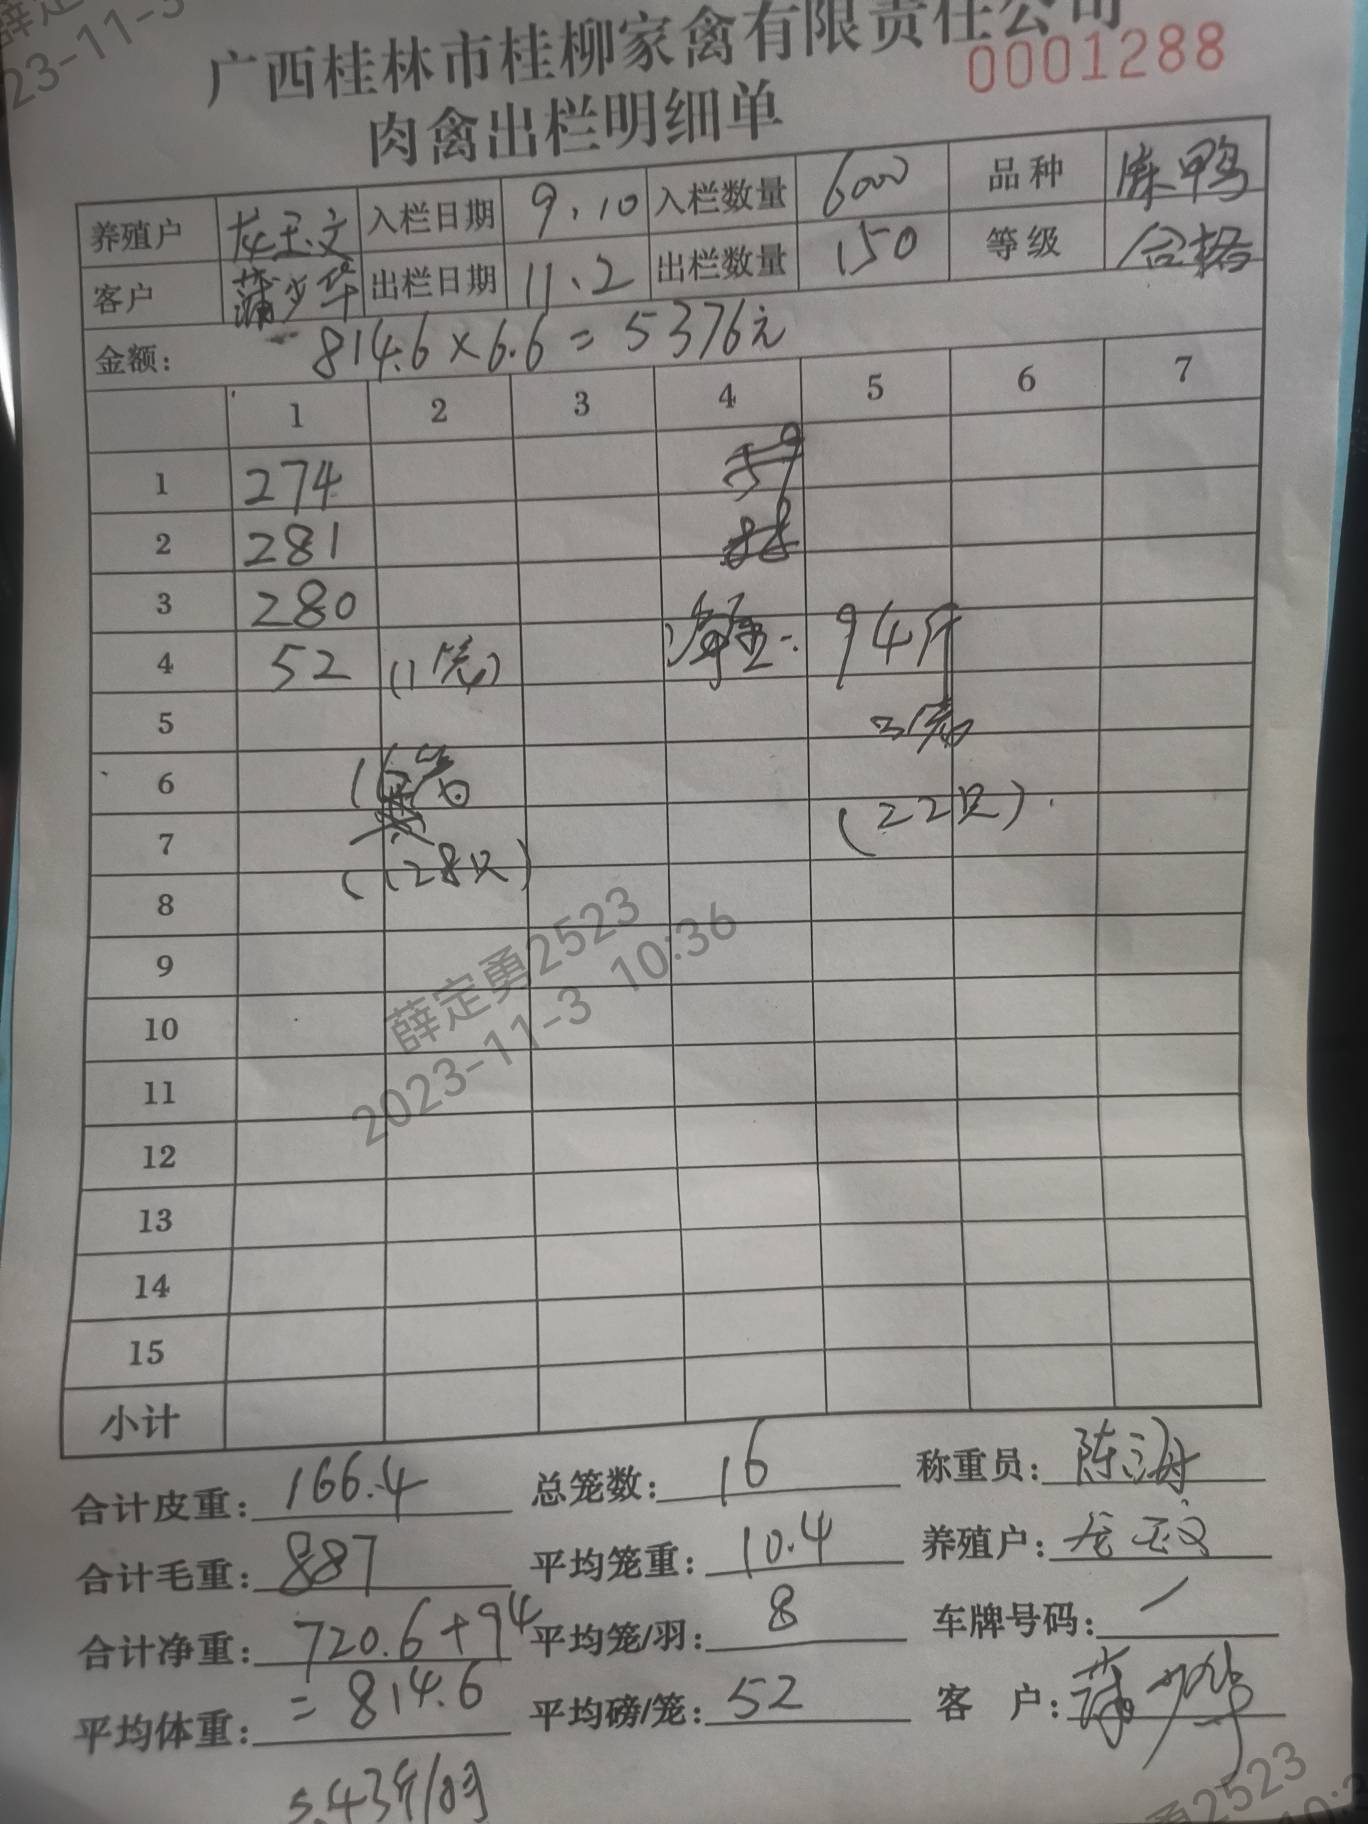 广西桂林市桂柳家禽有限责任公司
0001288
肉禽出栏明细单
养殖户 龙玉文 入栏日期 9.10 入栏数量 6000 品种 麻鸭
客户 蒲少华 出栏日期 11.2 出栏数量 150 等级 合格
金额: 814.6×6.6=5376元
1 2 3 4 5 6 7
1 274
2 281
3 280
4 52 (1笼) 净重: 94斤
5 3笼
6 16笼 (22只)
7
(128只)
8
9
10
11
12
13
14
15
小计
合计皮重: 166.4 总笼数: 16 称重员: 陈海
合计毛重: 887 平均笼重: 10.4 养殖户: 龙玉文
合计净重: 720.6+94 平均笼/羽: 8 车牌号码: /
=814.6
平均体重: 平均磅/笼: 52 客 户: 蒲少华
5.43斤/羽
薛定勇2523
2023-11-3 10:36
薛定勇2523